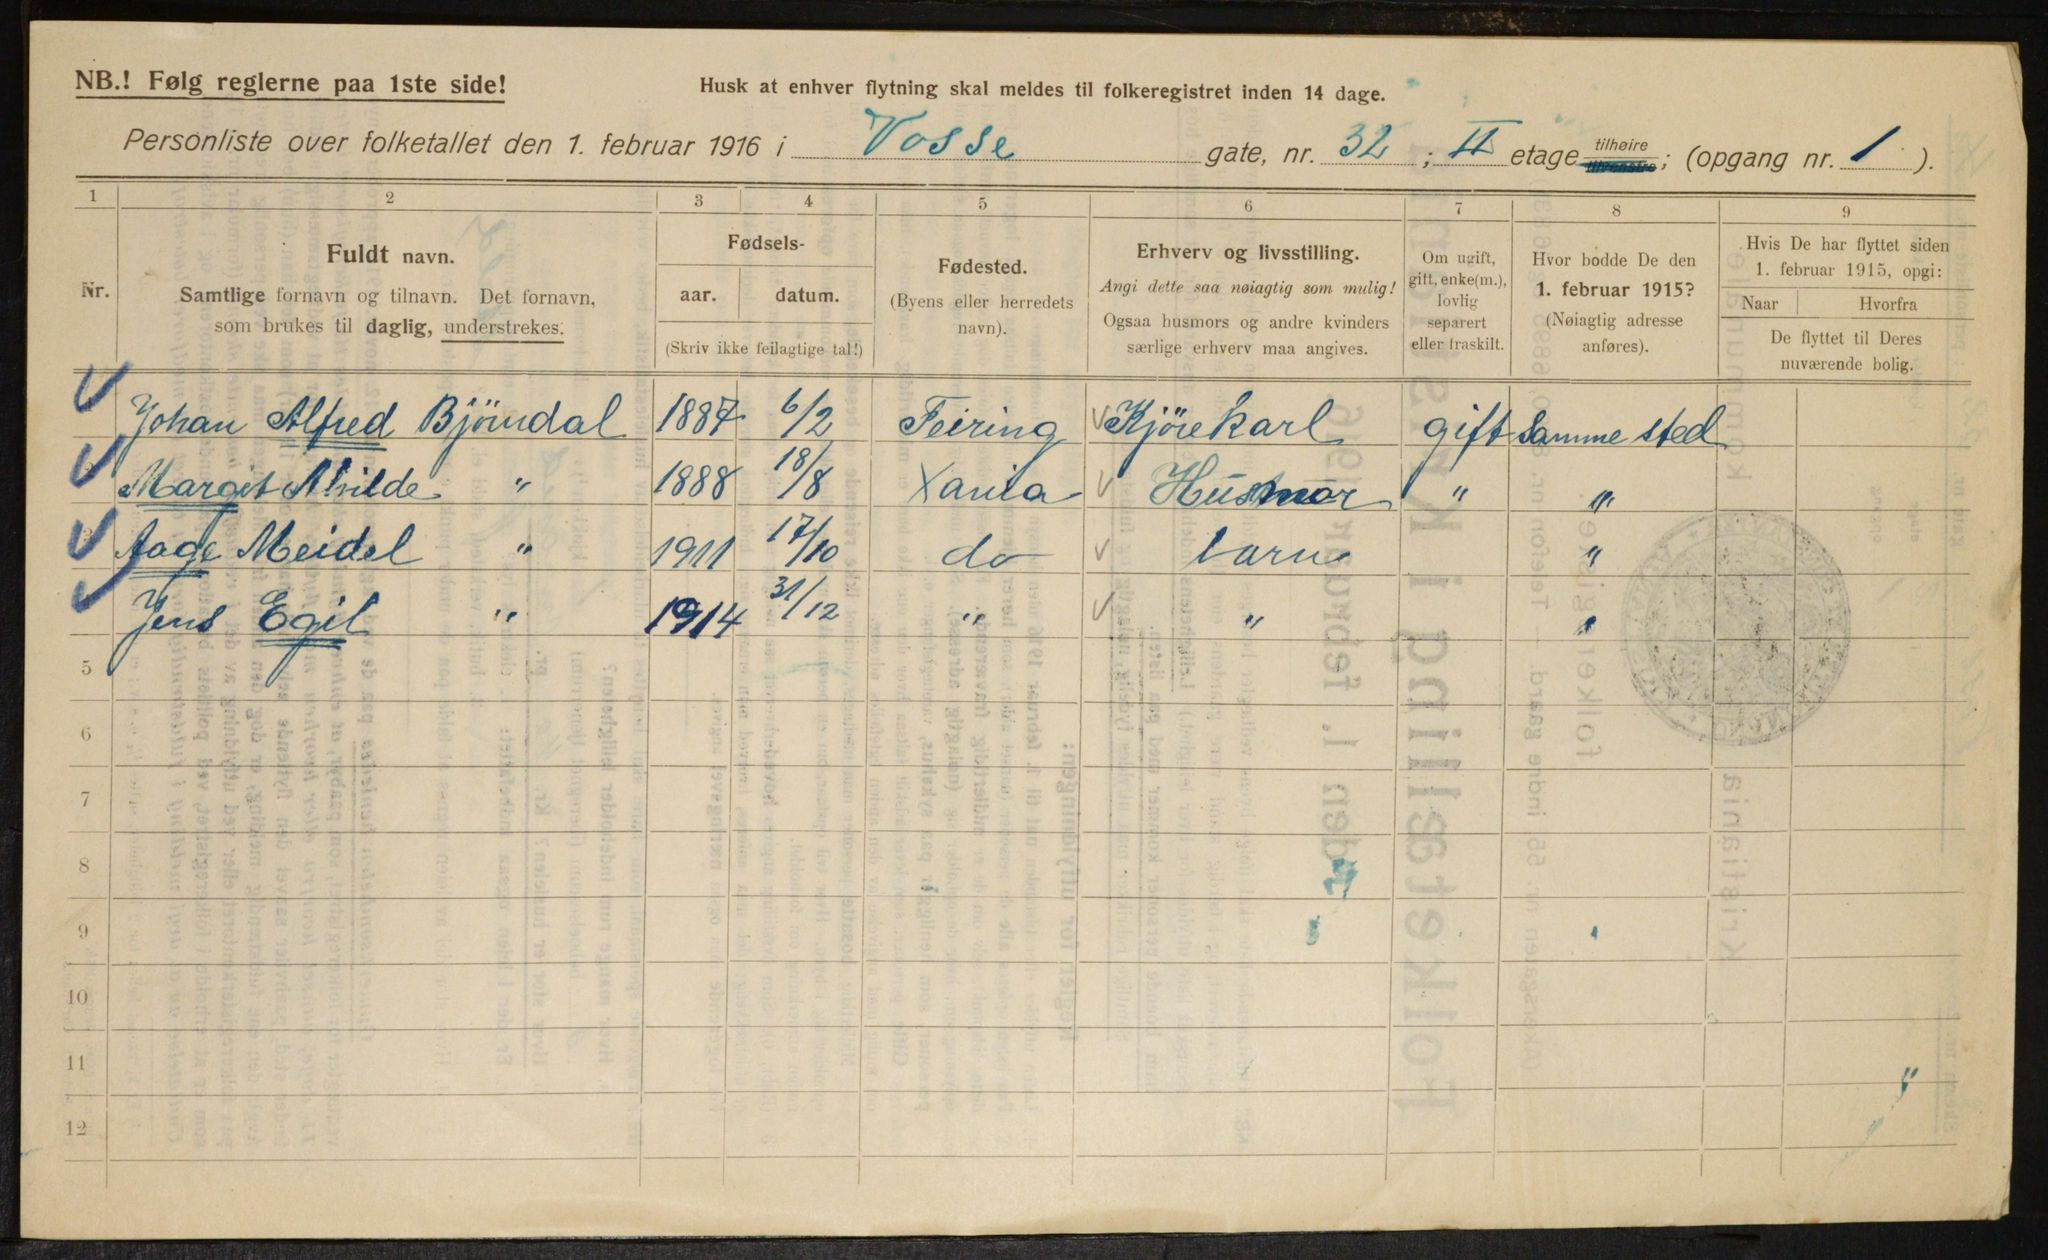 NB.! Følg reglerne paa 1ste side!
Husk at enhver flytning skal meldes til folkeregistret inden 14 dage.
Personliste over folketallet den 1. februar 1916 i Vosse gate, nr. 32 ; II etage tilhøire tilvenstre ; (opgang nr. 1 ).
1 2 3 4 5 6 7 8 9
Nr.
Fuldt navn.
Samtlige fornavn og tilnavn. Det fornavn,
som brukes til daglig, understrekes.
Fødsels-
aar. datum.
(Skriv ikke feilagtige tal!)
Fødested.
(Byens eller herredets
navn).
Erhverv og livsstilling.
Angi dette saa nøiagtig som mulig!
Ogsaa husmors og andre kvinders
særlige erhverv maa angives.
Om ugift,
gift, enke(m.),
lovlig
separert
eller fraskilt.
Hvor bodde De den
1. februar 1915?
(Nøiagtig adresse
anføres).
Hvis De har flyttet siden
1. februar 1915, opgi:
Naar Hvorfra
De flyttet til Deres
nuværende bolig.
Johan Alfred Bjørndal 1887 6/2 Feiring Kjørekarl gift Samme sted
Margit Alvilde " 1888 18/8 Xania Husmor " "
Aage Meidel " 1911 17/10 do barn "
Jens Egil " 1914 31/12 " " "
5
6
7
8
9
10
11
12